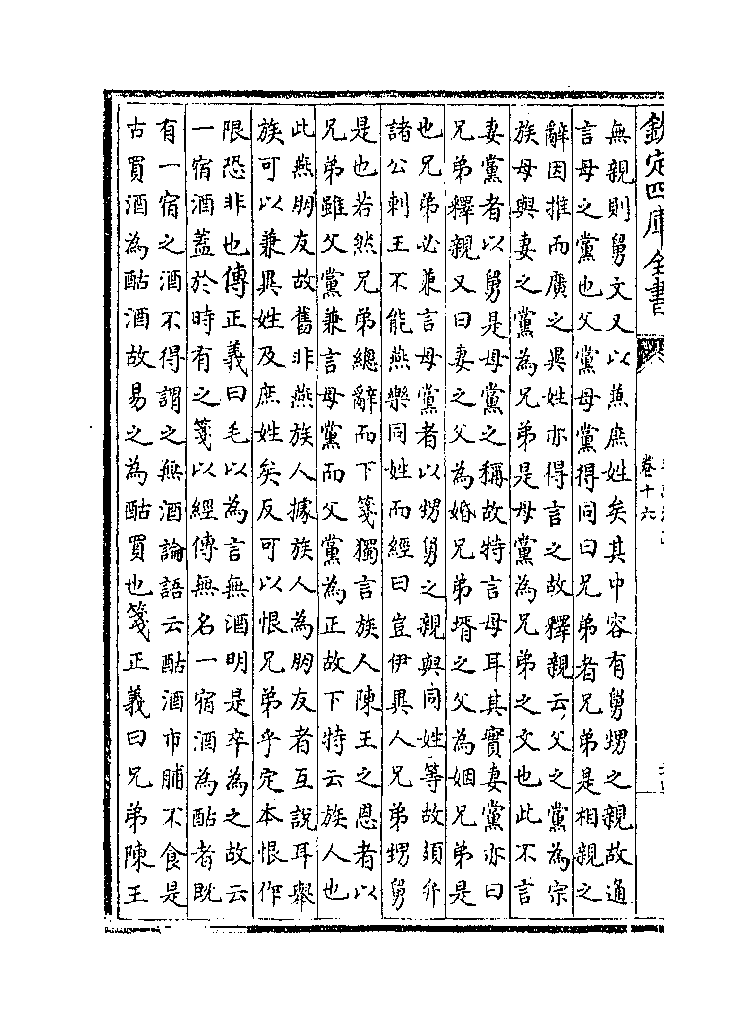 欽定四庫全書
卷十六
無親則舅文又以燕庶姓矣其中容有舅甥之親故通
言母之黨也父黨母黨得同曰兄弟者兄弟是相親之
辭因推而廣之異姓亦得言之故釋親云父之黨為宗
族母與妻之黨為兄弟是母黨為兄弟之文也此不言
妻黨者以舅是母黨之稱故特言母耳其實妻黨亦曰
兄弟釋親又曰妻之父為婚兄弟壻之父為姻兄弟是
也兄弟必兼言母黨者以甥舅之親與同姓等故頍弁
諸公刺王不能燕樂同姓而經曰豈伊異人兄弟甥舅
是也若然兄弟總辭而下箋獨言族人陳王之恩者以
兄弟雖父黨兼言母黨而父黨為正故下特云族人也
此燕朋友故舊非燕族人據族人為朋友者互說耳舉
族可以兼異姓及庶姓矣反可以恨兄弟乎定本恨作
限恐非也傳正義曰毛以為言無酒明是卒為之故云
一宿酒蓋於時有之箋以經傳無名一宿酒為酤者既
有一宿之酒不得謂之無酒論語云酤酒市脯不食是
古買酒為酤酒故易之為酤買也箋正義曰兄弟陳王